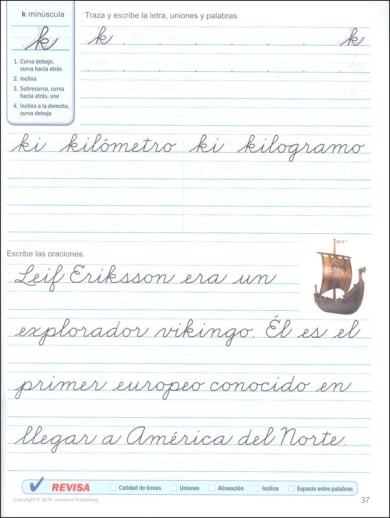 k minúscula
k
1. Curva debajo, curva hacia atrás
2. Inclina
3. Sobrecurva, curva hacia atrás, une
4. Inclina a la derecha, curva debajo
Traza y escribe la letra, uniones y palabras.
k k
ki kilómetro ki kilogramo
Escribe las oraciones.
Leif Eriksson era un
explorador vikingo. Él es el
primer europeo conocido en
llegar a América del Norte.
REVISA Calidad de líneas Uniones Alineación Inclina Espacio entre palabras
Copyright © Universal Publishing 37